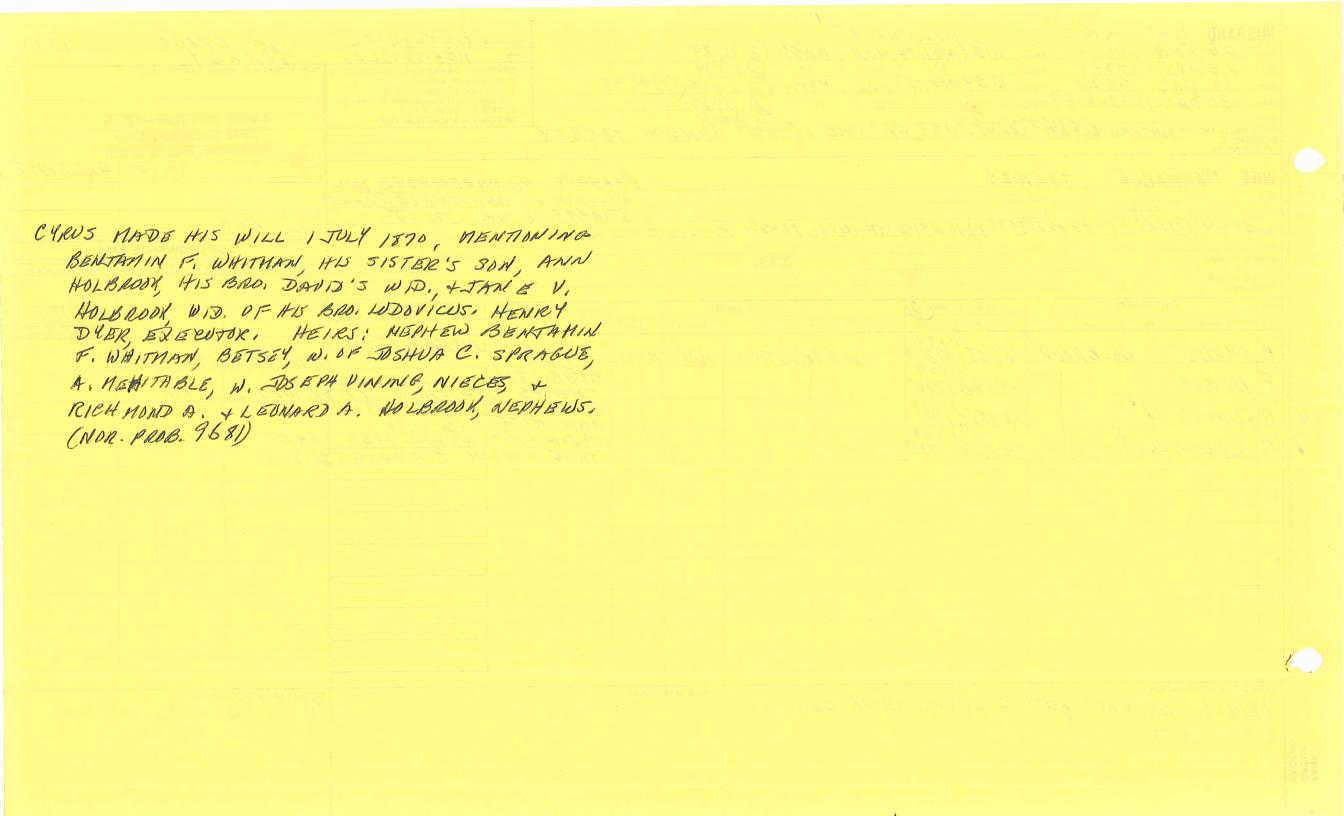 CYRUS MADE HIS WILL 1 JULY 1870, MENTIONING
BENJAMIN F. WHITMAN, HIS SISTER'S SON, ANN
HOLBROOK, HIS BRO. DAVID'S WID., & JANE V.
HOLBROOK, WID. OF HIS BRO. LUDOVICUS. HENRY
DYER, EXECUTOR. HEIRS: NEPHEW BENJAMIN
F. WHITMAN, BETSEY, W. OF JOSHUA C. SPRAGUE,
A. MEHITABLE, W. JOSEPH VINING, NIECES, &
RICHMOND A. & LEONARD A. HOLBROOK, NEPHEWS.
(NOR. PROB. 9681)